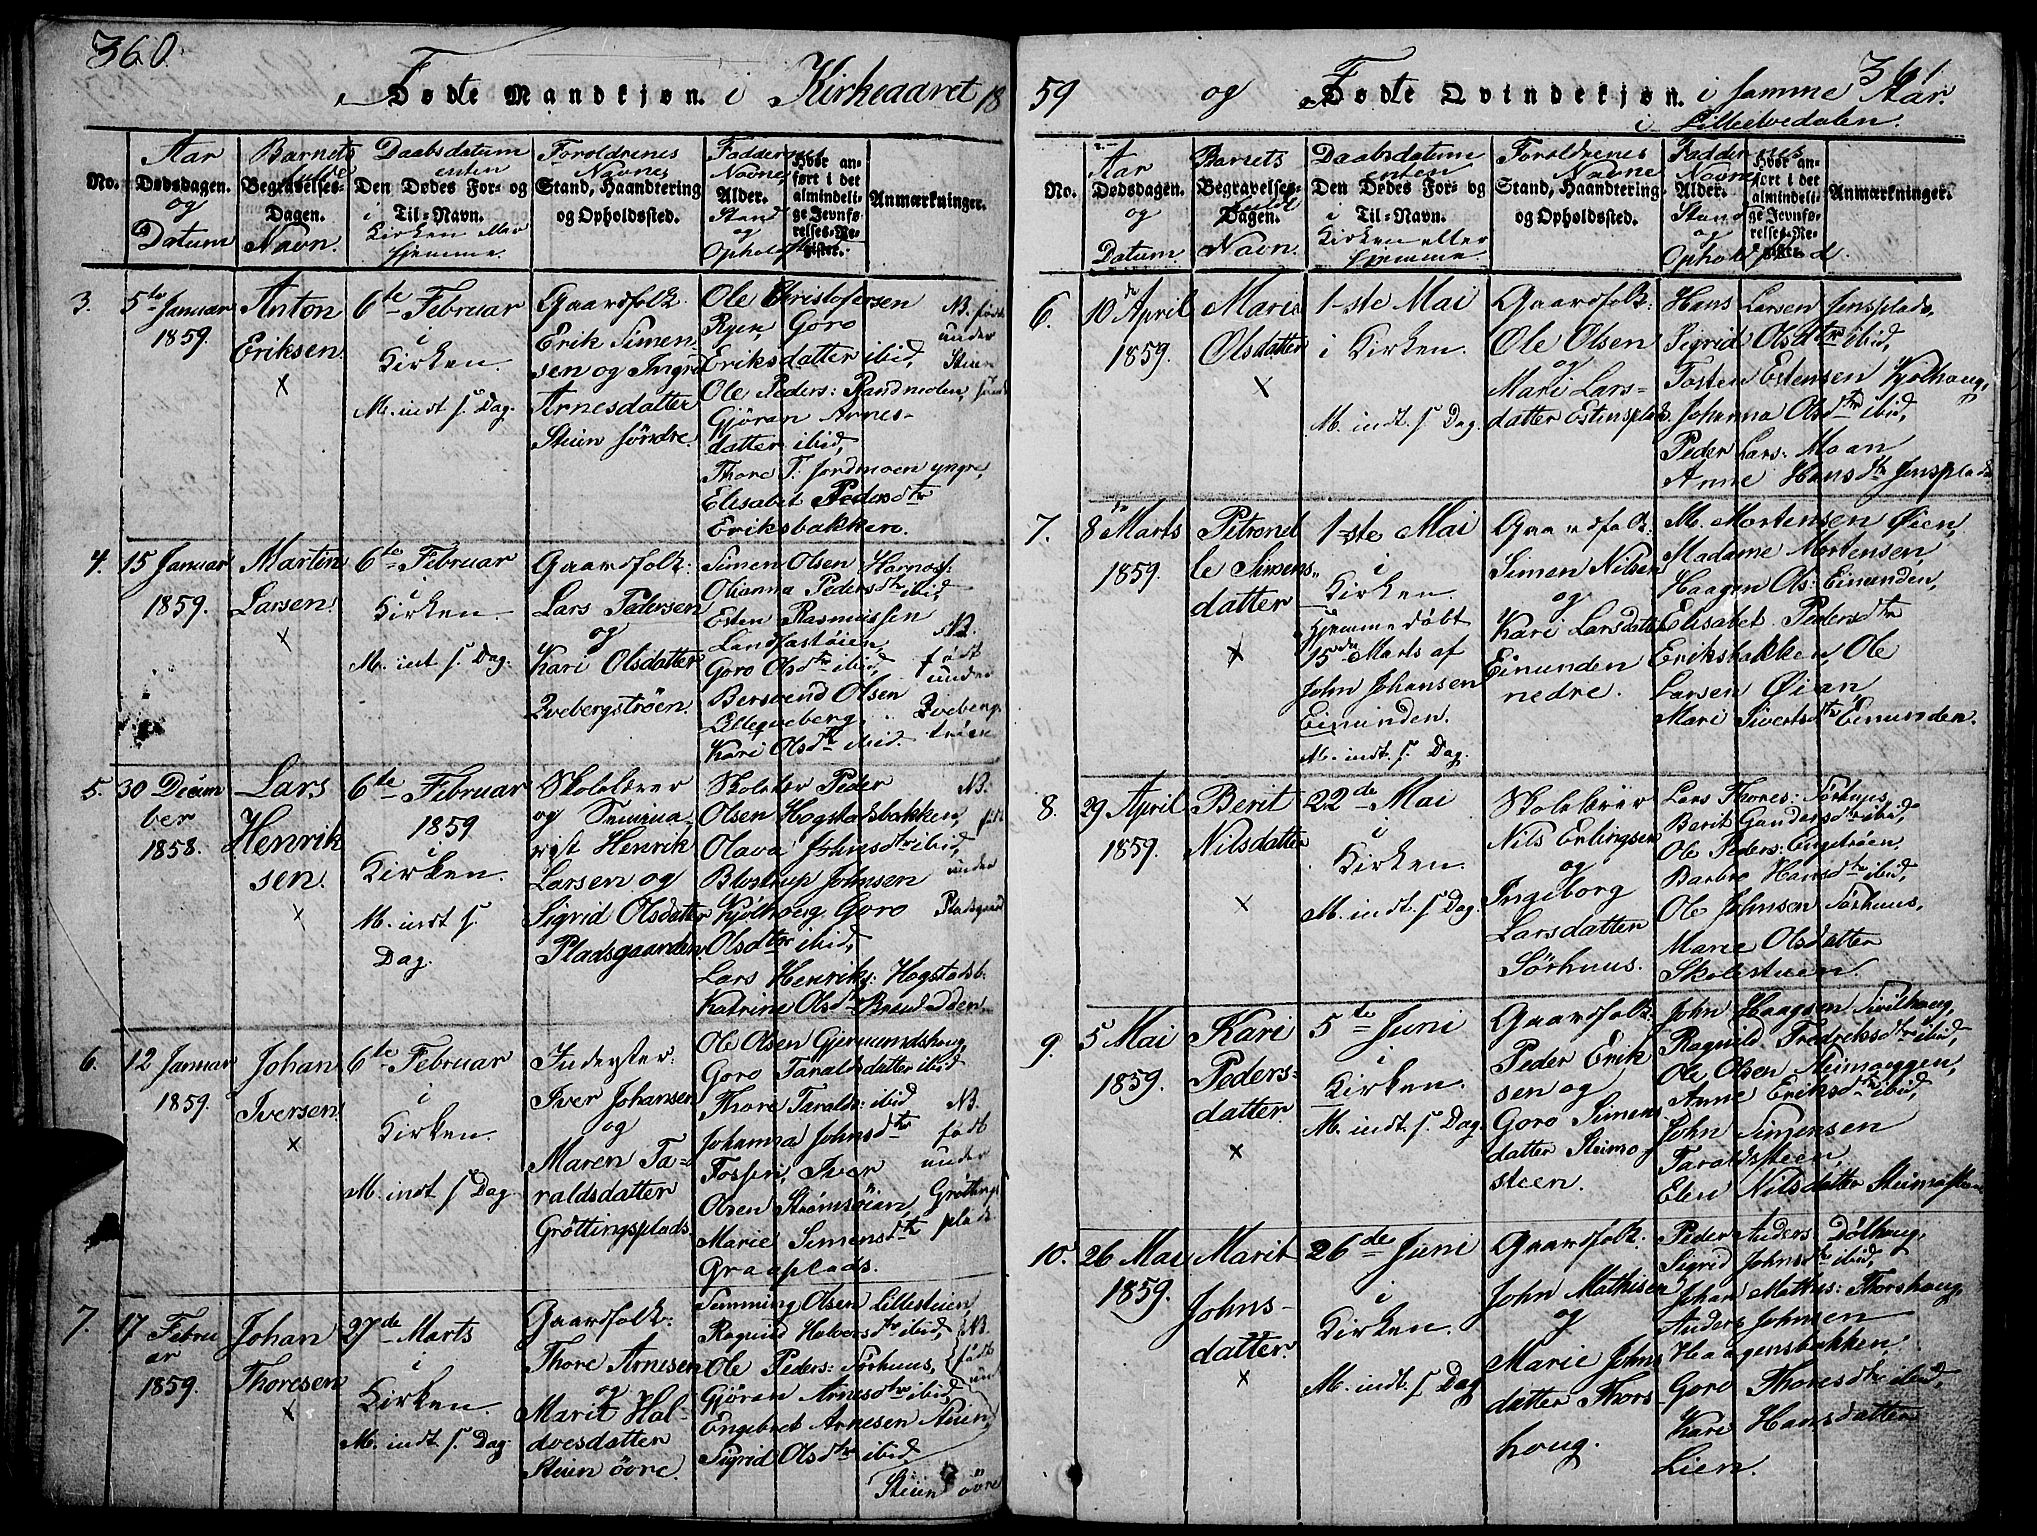 360.
Fødte Mandkjøn. i Kirkeaaret 18
No.
Aar
Dødsdagen.
og
Datum
Barnets
fulde
Begravelses-
Dagen.
Navn.
Daabsdatum
enten
Den Dødes For- og
i
Til-Navn.
Kirken eller
hjemme.
Forældrenes
Navne
Stand, Haandtering
og Opholdssted.
Faddernes
Navne,
Alder.
Stand
og
Opholdssted
Hvor an-
ført i det
almindeli-
ge Jevnfø-
relses-Re-
gister.
Anmærkninger.
3.
5te Januar
1859.
Anton
Eriksen.
×
6te Februar
i
Kirken.
M. indt. s. Dag.
Gaardfolk:
Erik Simen-
sen og Ingrid
Arnesdatter
Steien søndre.
Ole Christofersen
Ryen, Goro
Eriksdatter ibid,
Ole Peders: Randmolen,
Gjøran Arnes-
datter ibid,
Thore T. Jordmoen yngre,
Elisabet Pedersdtr
Eriksbakken.
NB. født
under
Steien
søndre
4.
15 Januar
1859.
Martin
Larsen.
×
6te Februar
i
Kirken.
M. indt. s. Dag.
Gaardfolk:
Lars Pedersen
og
Kari Olsdatter
Qvebergstrøen.
Simen Olsen Harnos:
Olianna Pedersdtr ibid
Esten Rasmussen
Goro Olsdtr ibid,
Bersvend Olsen
Lilleqveberg,
Kari Olsdtr ibid.
NB.
født
under
Qveberg-
trøen
5.
30 Decem
ber
1858.
Lars
Henrik
sen.
×
6te Februar
1859
i
Kirken.
M. indt. s.
Dag.
Skolelærer
og Semina-
rist Henrik
Larsen og
Sigrid Olsdatter
Pladsgaarden
Skolelær Peder
Olsen Hogstadsbakken,
Olava Johnsdtr ibid,
Blostrup Johnsen
Kjølhoug, Goro
Olsdtr ibid,
Lars Henriks: Hogstadsb.
Katrine Olsdtr
NB.
født
under
Pladsgaard
6.
12 Januar
1859.
Johan
Iversen.
×
6te Februar
i
Kirken.
M. indt. s. Dag
Inderster:
Iver Johansen
og
Maren Ta-
raldsdatter
Grøttingsplads.
Ole Olsen Gjermundshoug,
Goro Taraldsdatter ibid
Thore Taralds: ibid
Johanna Johnsdtr
Iver
Olsen Strømsøien,
Marie Simensdtr
Graaplads.
NB.
født
under
Grøttings
plads
7.
17 Febru
ar
1859.
Johan
Thoresen
×
27de Marts
i
Kirken.
M. indt. s. Dag
Gaardfolk:
Thore Arnesen
og
Marit Hal-
vorsdatter
Steien øvre.
Semming Olsen Lillesteien
Ragnild Halvorsdtr ibid,
Ole Peders: Sørhuus,
Gjøran Arnesdtr ibid,
Engebret Arnesen Steien,
Sigrid Olsdtr ibid
NB.
født
und
Steien øvre
361
59 og Fødte Qvindekjøn. i samme Aar.
i Lilleelvedalen.
No.
Aar
Dødsdagen.
og
Datum.
Barnets
Begravelses-
fulde
Dagen.
Navn.
Daabsdatum
enten
Den Dødes For- og
i
Til-Navn.
Kirken eller
hjemme
Forældrenes
Navne
Stand, Haandtering
og Opholdssted.
Faddernes
Navne
Alder.
Stand
og
Opholdssted.
Hvor an-
ført i det
almindeli-
ge Jevnfø-
relses-Re-
gister.
Anmærkninger.
6.
10de April
1859.
Maria
Olsdatter
×
1-ste Mai
i Kirken.
M. indt. s. Dag.
Gaardfolk:
Ole Olsen
og
Mari Lars-
datter Estensplads
Hans Larsen Jensplads,
Sigrid Olsdtr ibid,
Tosten Estensen Kjølhoug,
Johanna Olsdtr ibid,
Peder Lars: Moan
Anne Hansdtr Jensplads
7.
8de Marts
1859.
Petronel
le Simens-
datter
×
1-ste Mai
i
Kirken.
Hjemmedøbt
15de Marts af
John Johansen
Eimunden.
M. indt. s. Dag.
Gaardfolk:
Simen Nilsen
og
Kari Larsdatter
Eimunden
nedre.
M. Mortensen Øien,
Madame Mortensen,
Haagen Ols: Eimunden,
Elisabet Pedersdtr
Eriksbakken, Ole
Larsen Øian,
Mari Sivertsdtr Eimunden.
8.
29 April
1859.
Berit
Nilsdatter
×
22de Mai
i
Kirken.
M. indt. s. Dag.
Skolelærer
Nils Erlingsen
og
Ingeborg
Larsdatter
Sørhuus.
Lars Thores: Sørhuus,
Berit Gundersdtr ibid,
Ole Peders: Engetrøen,
Barbro Hansdtr ibid,
Ole Johnsen Sørhuus,
Marie Olsdatter
Skolestuen.
9.
5 Mai
1859.
Kari
Peders-
datter.
×
5te Juni
i
Kirken.
M. indt. s. Dag.
Gaardfolk:
Peder Erik
sen og
Goro Simens
datter Steimo
steen.
John Haagsen
Ragnild Fredriksdtr ibid,
Ole Olsen Steimoeggen,
Anne Eriksdtr ibid,
John Simensen
Taraldssteen,
Elen Nilsdatter Steimosteen
10.
26 Mai
1859.
Marit
Johns-
datter.
×
26de Juni
i
Kirken.
M. indt. s. Dag
Gaardfolk:
John Mathisen
og
Marie Johns
datter Thors-
houg.
Peder Anders Dølhoug,
Sigrid Johnsdtr ibid,
Johan Mathis: Thorshoug,
Anders Johnsen
Haagensbakken
Goro Thoresdtr ibid,
Kari Hansdatter
Lien.